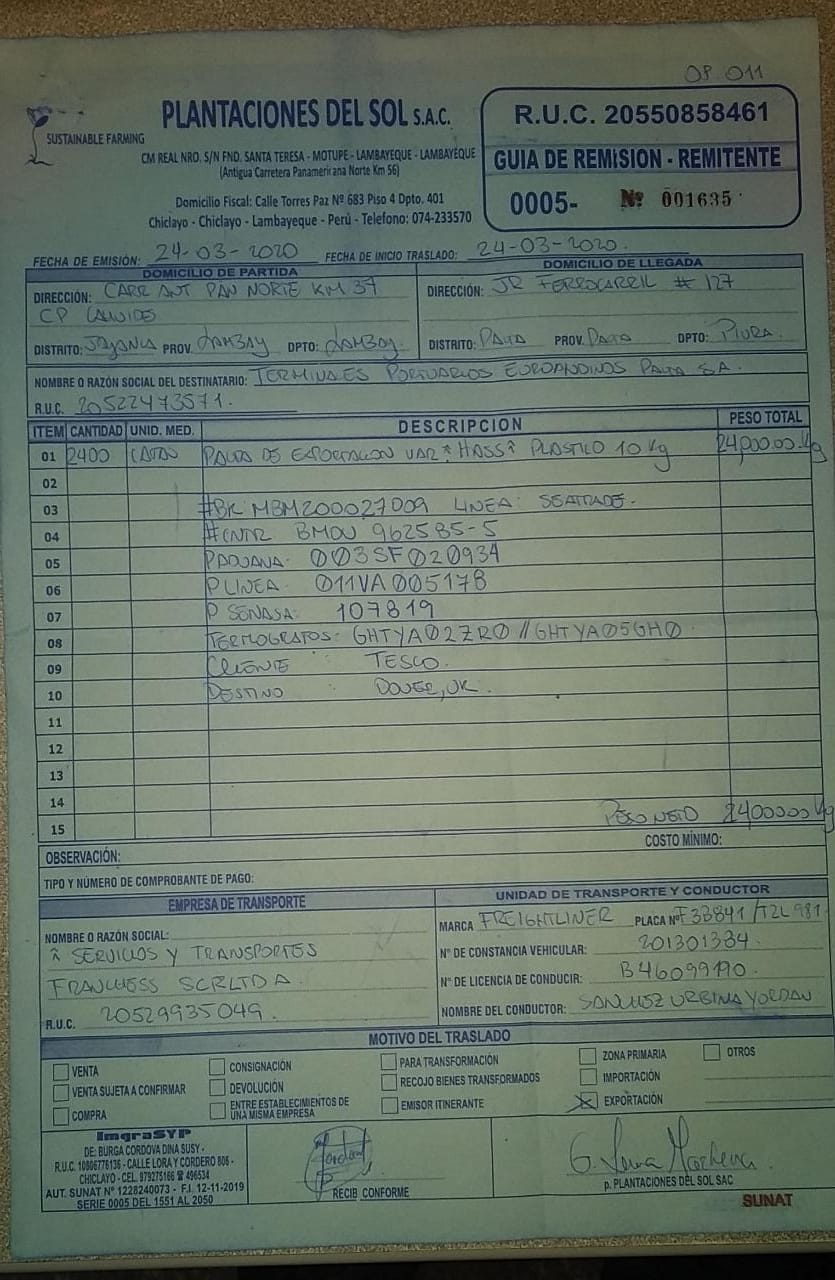 OP. 011
PLANTACIONES DEL SOL S.A.C.
SUSTAINABLE FARMING
CM REAL NRO. S/N FND. SANTA TERESA - MOTUPE - LAMBAYEQUE - LAMBAYEQUE
(Antigua Carretera Panamericana Norte Km 56)
Domicilio Fiscal: Calle Torres Paz Nº 683 Piso 4 Dpto. 401
Chiclayo - Chiclayo - Lambayeque - Perú - Telefono: 074-233570
R.U.C. 20550858461
GUIA DE REMISION - REMITENTE
0005- Nº 001635
FECHA DE EMISIÓN: 24-03-2020 FECHA DE INICIO TRASLADO: 24-03-2020.
DOMICILIO DE PARTIDA
DIRECCIÓN: CARR ANT PAN NORTE KM 37
CP
DISTRITO: JAYANCA PROV. LAMBAY DPTO: LAMBAY.
DOMICILIO DE LLEGADA
DIRECCIÓN: JR FERROCARRIL # 127
DISTRITO: PAITA PROV. PAITA DPTO: PIURA.
NOMBRE O RAZÓN SOCIAL DEL DESTINATARIO: TERMINALES PORTUARIOS EUROANDINOS PAITA SA.
R.U.C. 20522473571.
ITEM CANTIDAD UNID. MED. DESCRIPCION PESO TOTAL
01 2400 CAJAS PALTA DE EXPORTACION VAR "HASS" PLASTICO 10 Kg 24,000.00 Kg
02
03 #BK MBM200027009 LINEA: SEATRADE.
04 #CNTR BMOU 962585-5
05 P ADUANA: 003SF020934
06 P LINEA: 011VA005178
07 P SENASA: 107819
08 TERMOGRAFOS: GHTYA02ZR0 // GHTYA05GH0
09 CLIENTE : TESCO.
10 DESTINO : DOVER, UK.
11
12
13
14
15 PESO NETO 24000.00 Kg
OBSERVACIÓN: COSTO MÍNIMO:
TIPO Y NÚMERO DE COMPROBANTE DE PAGO:
EMPRESA DE TRANSPORTE
NOMBRE O RAZÓN SOCIAL:
SERVICIOS Y TRANSPORTES
SCRLTDA
R.U.C. 20529935049.
UNIDAD DE TRANSPORTE Y CONDUCTOR
MARCA FREIGHTLINER PLACA Nº F3B841/T2L981
N° DE CONSTANCIA VEHICULAR: 201301334.
N° DE LICENCIA DE CONDUCIR: B46099190.
NOMBRE DEL CONDUCTOR: SANCHEZ URBINA YORDAN
MOTIVO DEL TRASLADO
VENTA CONSIGNACIÓN PARA TRANSFORMACIÓN ZONA PRIMARIA OTROS
VENTA SUJETA A CONFIRMAR DEVOLUCIÓN RECOJO BIENES TRANSFORMADOS IMPORTACIÓN
COMPRA ENTRE ESTABLECIMIENTOS DE UNA MISMA EMPRESA EMISOR ITINERANTE X EXPORTACIÓN
ImgraSYP
DE: BURGA CORDOVA DINA SUSY -
R.U.C. 10806776136 - CALLE LORA Y CORDERO 806 -
CHICLAYO - CEL. 979275166 ☎ 496534
AUT. SUNAT Nº 1228240073 - F.I. 12-11-2019
SERIE 0005 DEL 1551 AL 2050
RECIB CONFORME
p. PLANTACIONES DEL SOL SAC
SUNAT